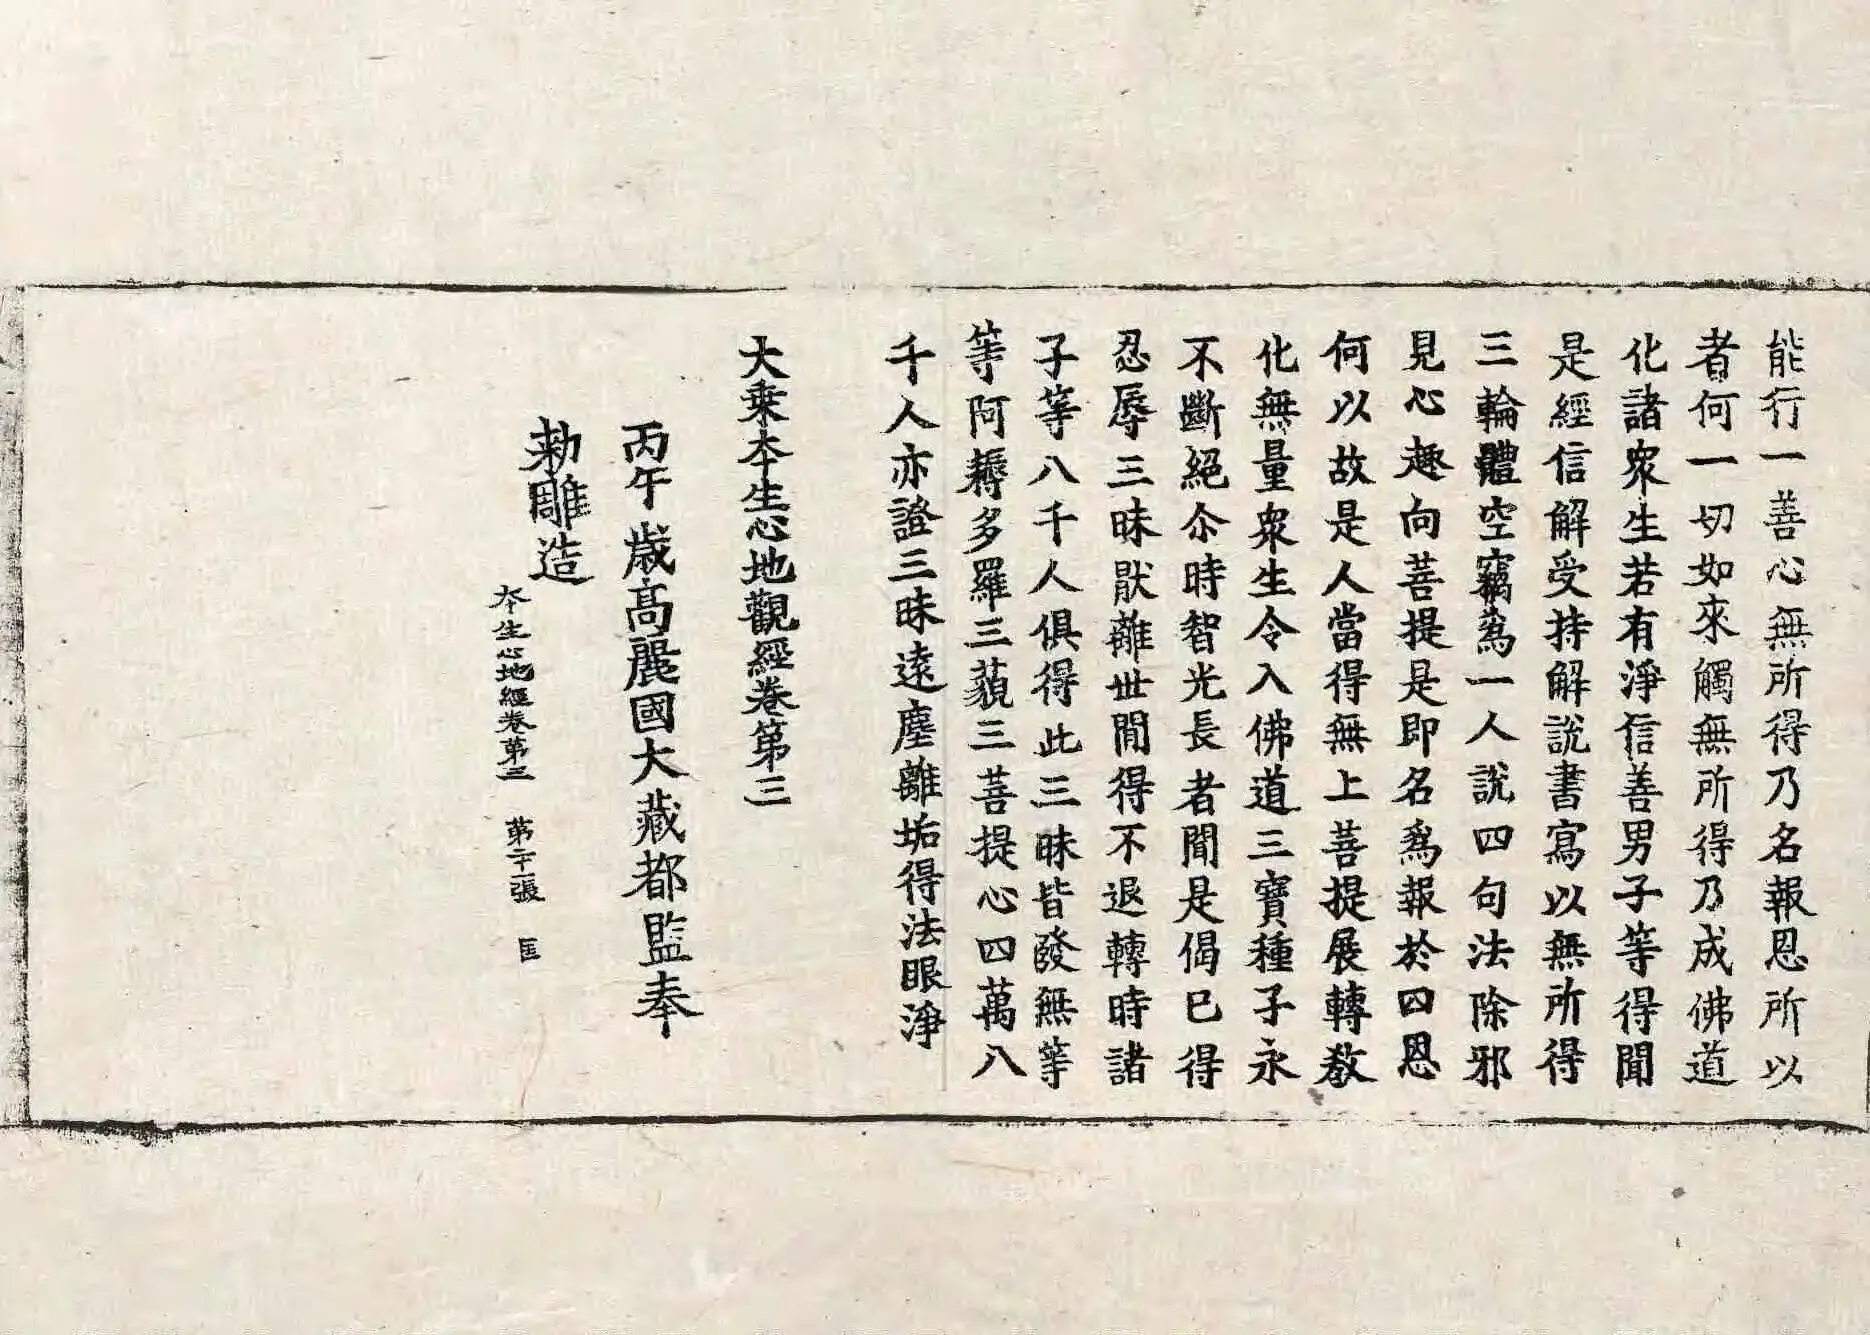 能行一善心無所得乃名報恩所以
者何一切如來觸無所得乃成佛道
化諸衆生若有淨信善男子等得聞
是經信解受持解說書寫以無所得
三輪體空竊爲一人說四句法除邪
見心趣向菩提是即名爲報於四恩
何以故是人當得無上菩提展轉教
化無量衆生令入佛道三寶種子永
不斷絕尒時智光長者聞是偈已得
忍辱三昧猒離世間得不退轉時諸
子等八千人俱得此三昧皆發無等
等阿耨多羅三藐三菩提心四萬八
千人亦證三昧遠塵離垢得法眼淨
大乘夲生心地觀經卷第三
丙午歲高麗國大藏都監奉
勅雕造
夲生心地經卷第三 第二十一張 匡